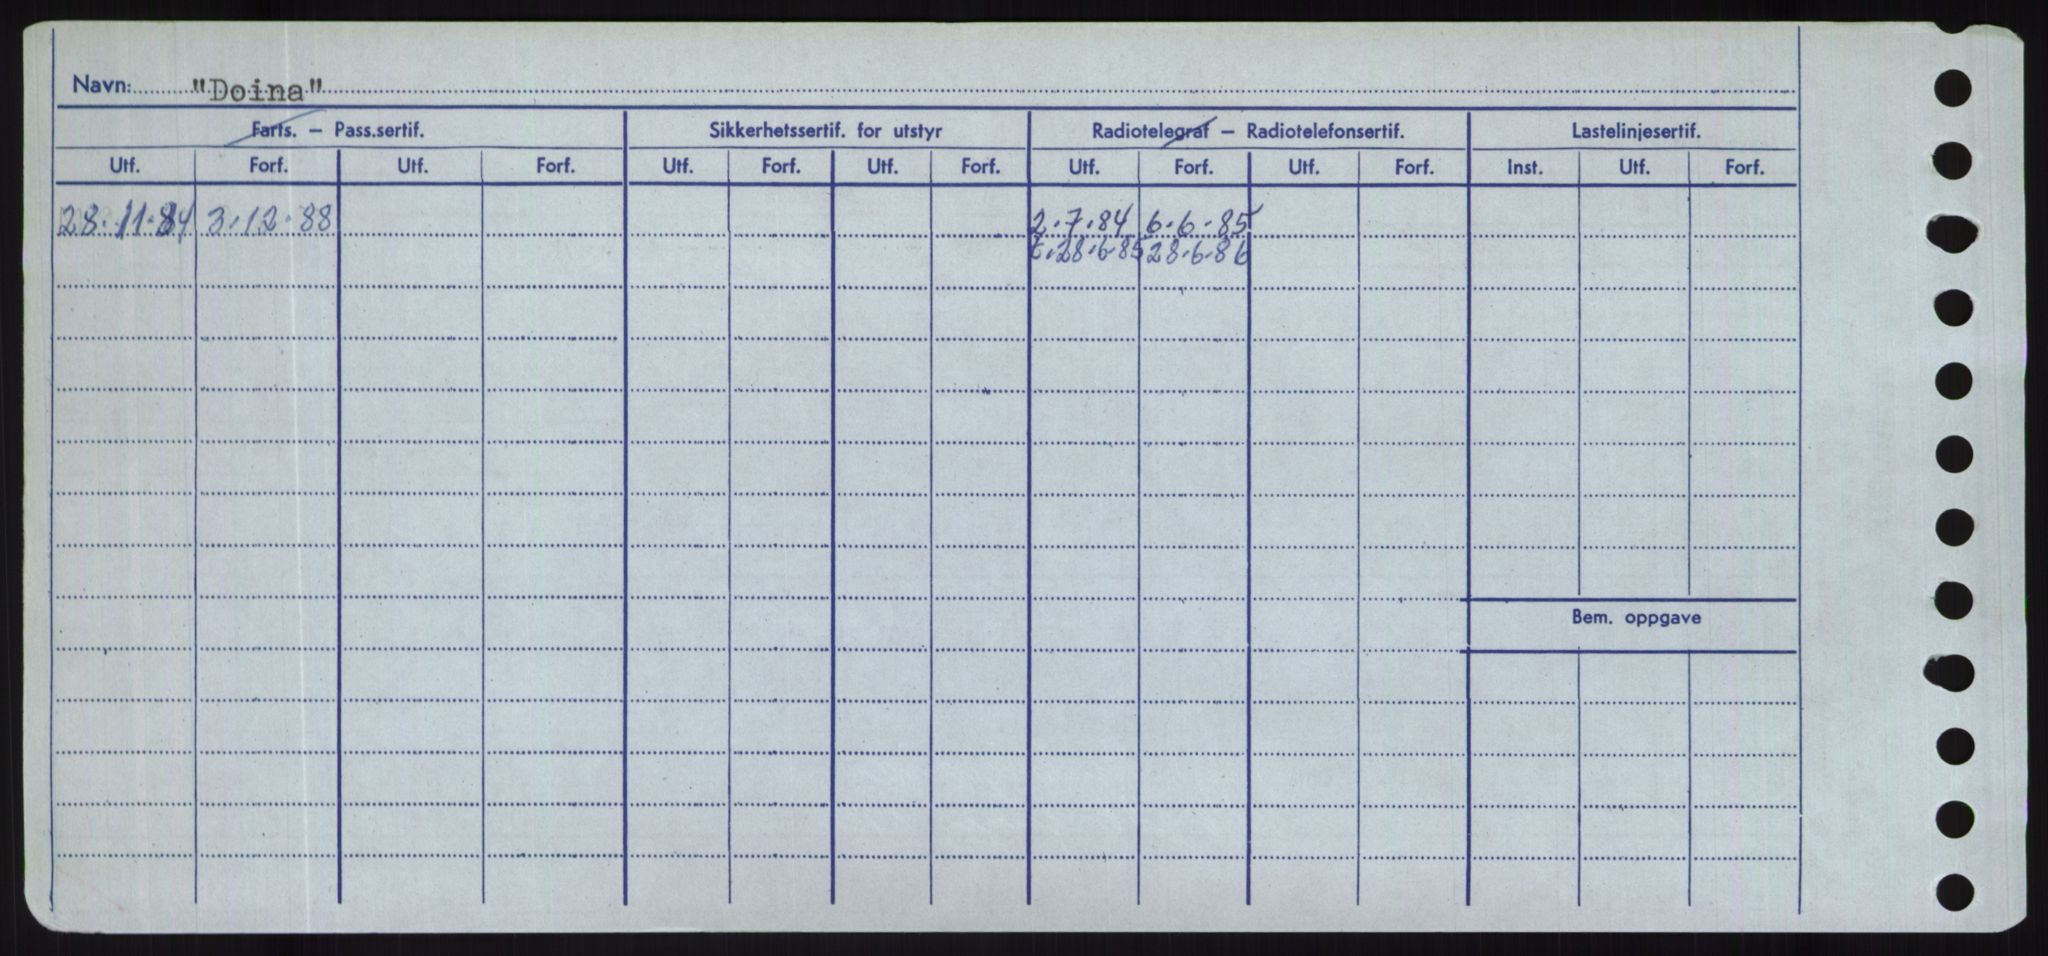 Navn: "Doina"
Farts. – Pass.sertif. Sikkerhetssertif. for utstyr Radiotelegraf – Radiotelefonsertif. Lastelinjesertif.
Utf. Forf. Utf. Forf. Utf. Forf. Utf. Forf. Utf. Forf. Utf. Forf. Inst. Utf. Forf.
28.11.84 3.12.88 2.7.84 6.6.85
28.6.85 28.6.86
Bem. oppgave